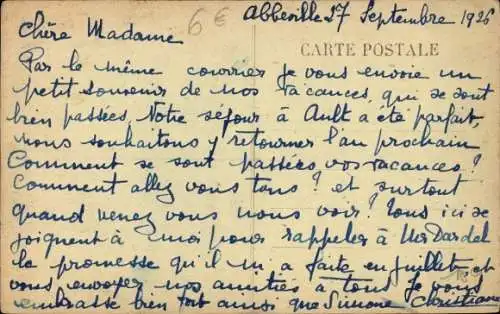 Abbeville 27 Septembre 1926
6 €
Chère Madame
CARTE POSTALE
Par le même courrier je vous envoie un
petit souvenir de nos vacances, qui se sont
bien passées, Notre séjour à Ault a été parfait,
nous souhaitons y retourner l'an prochain
Comment se sont passées vos vacances?
Comment allez vous tous? et surtout
quand venez vous nous voir? Tous ici se
joignent à moi pour rappeler à Mr Dardel
la promesse qu'il m'a faite en juillet, et
vous envoyer nos amitiés à tous Je vous
embrasse bien fort ainsi que Simone Christiane